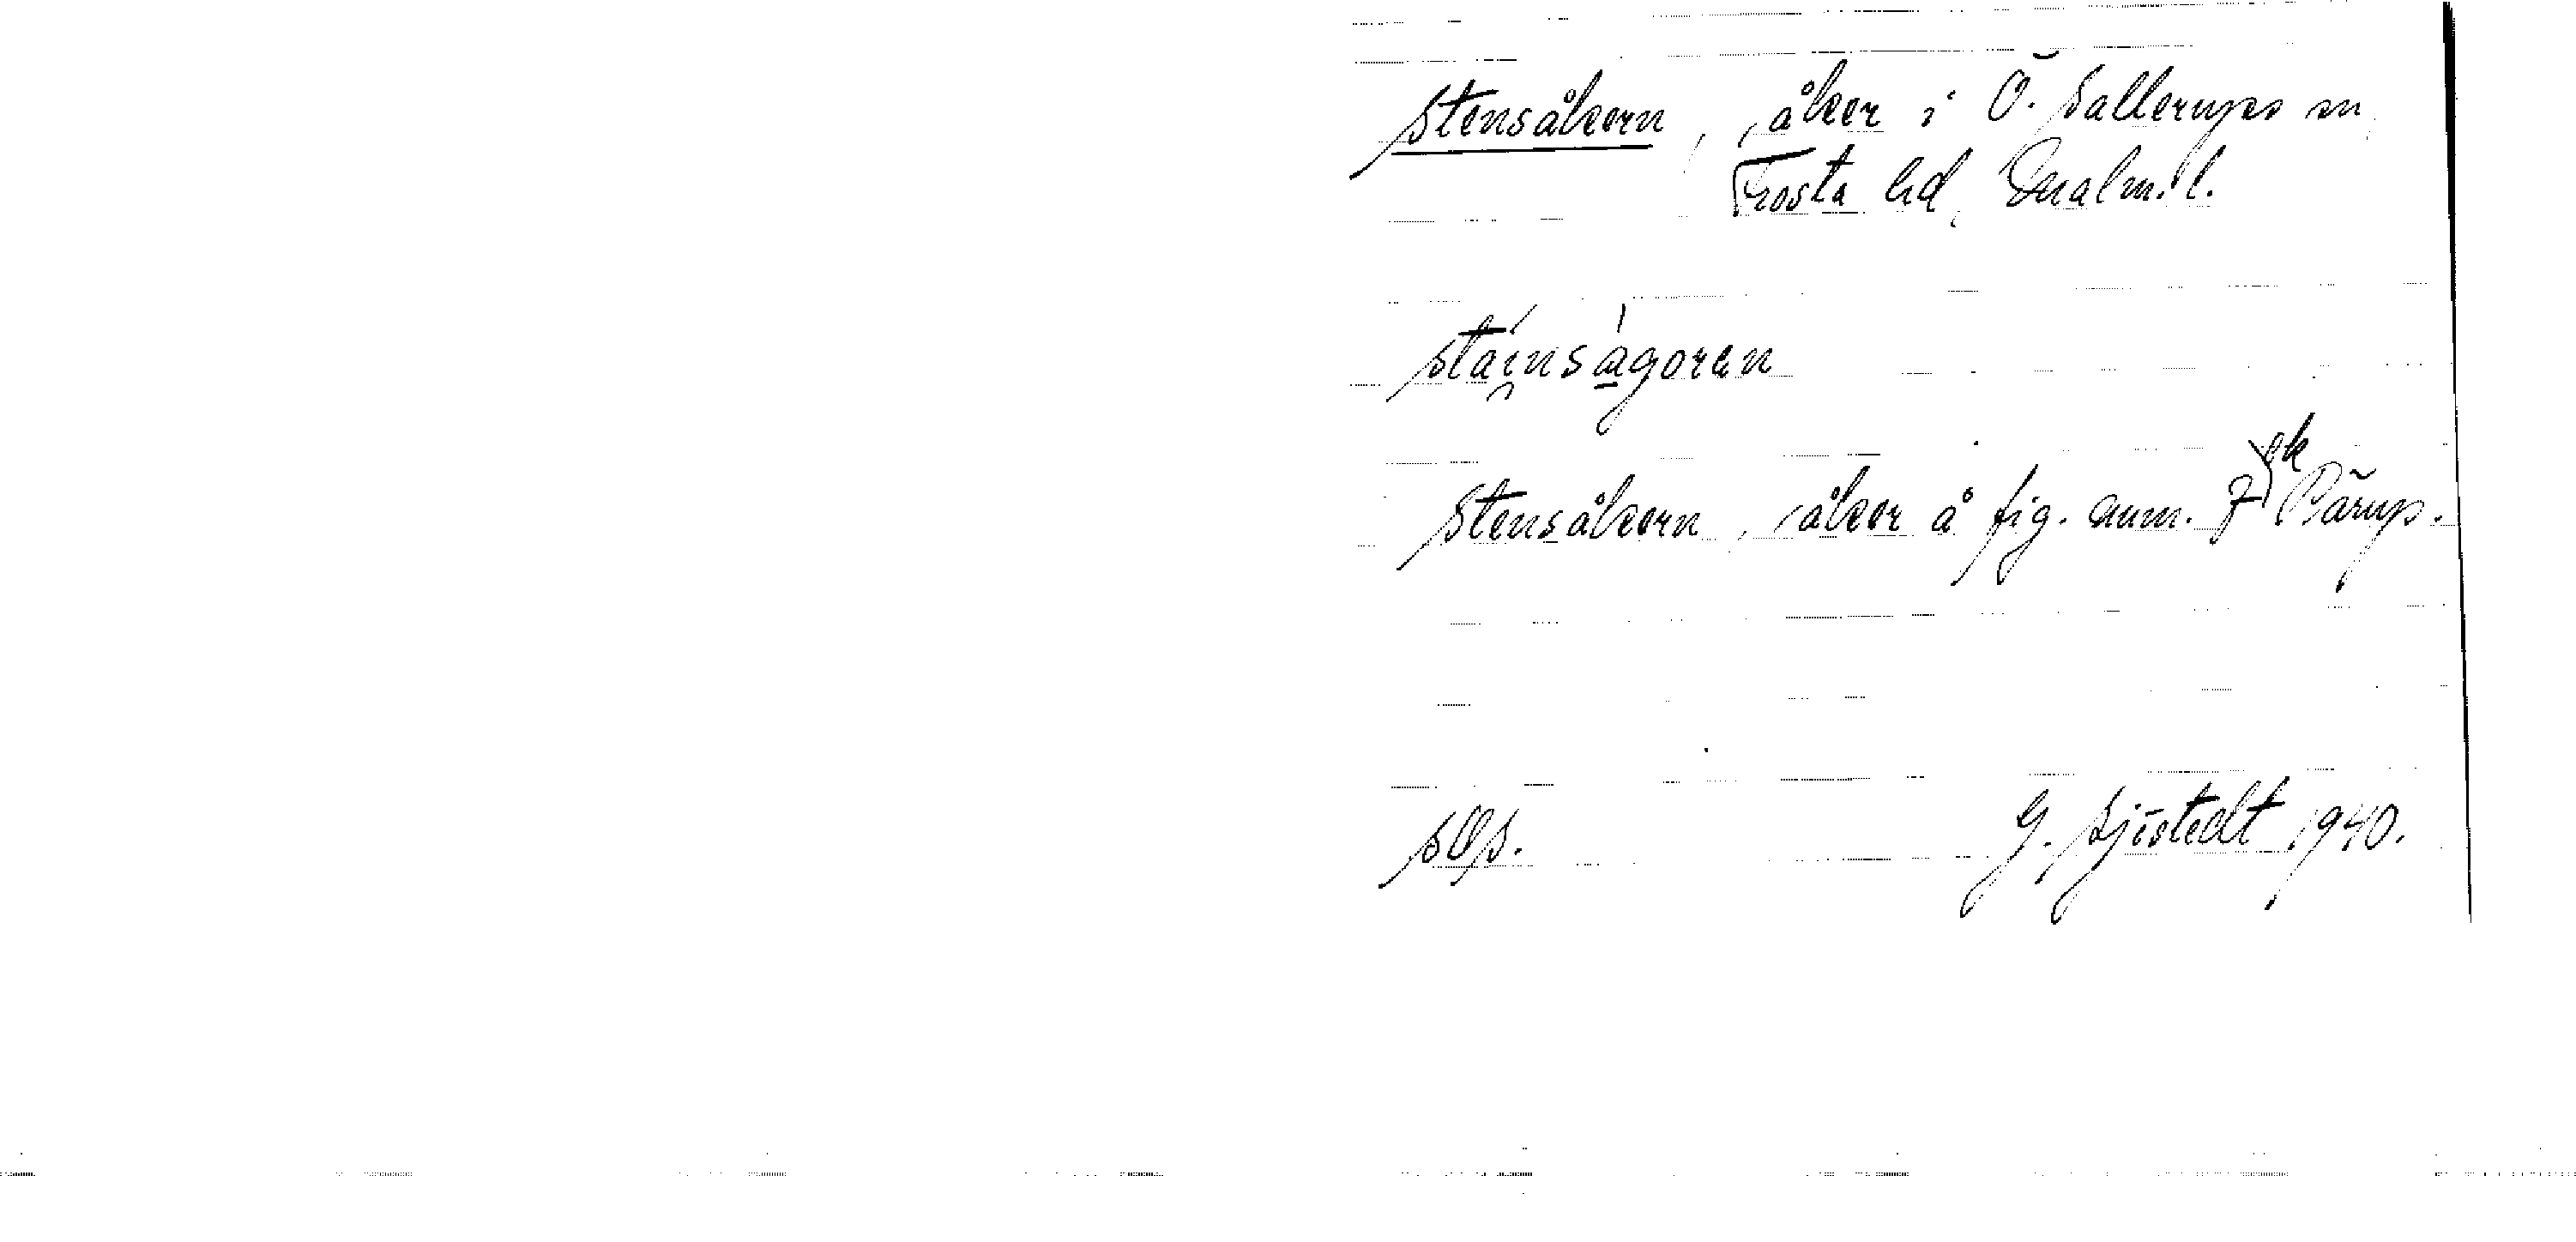 Stensåkern, åker i Ö. Sallerups sn,
Frosta hd, Malm. l.
stai̯nságoran
Stensåkern, åker å fig. num. 7 ek Pärup.
SOS.
G. Sjöstedt 1940.